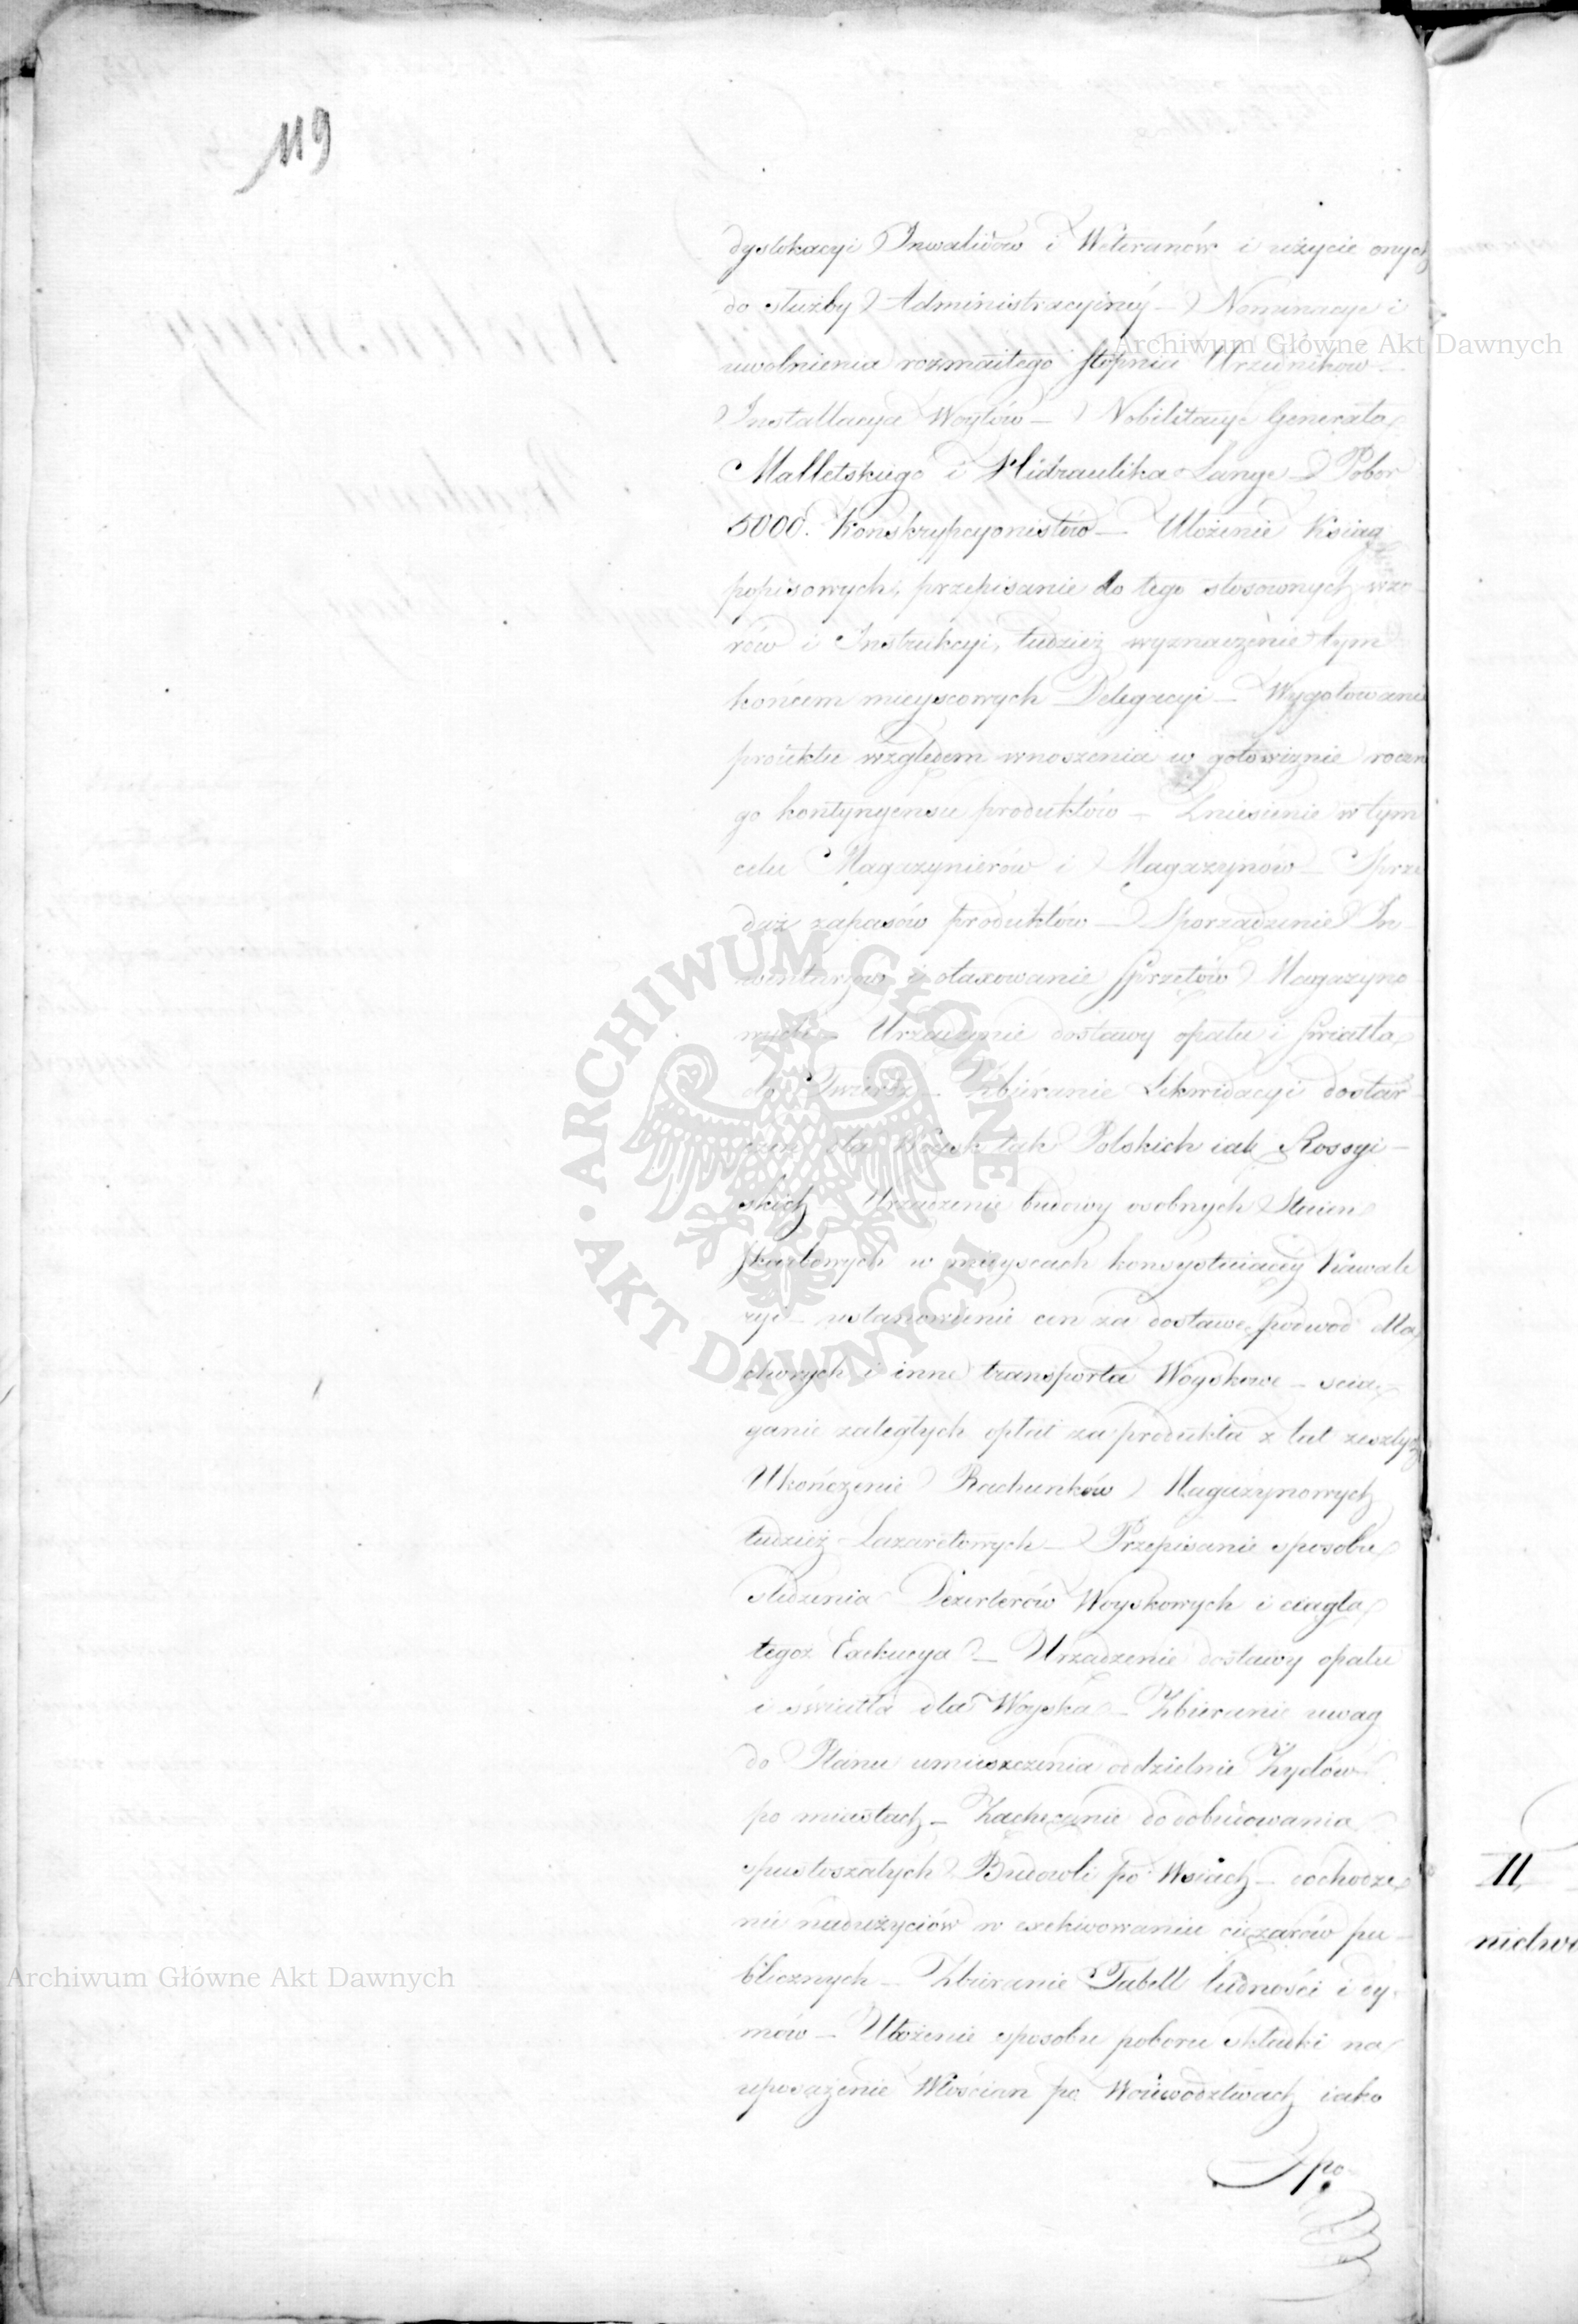 119
dyslokacyi Inwalidów i Weteranów i użycie onych
do służby Administracyiney – Nominacye i
uwolnienia rozmaitego stopnia Urzędników –
Installacya Woytów – Nobilitacye Generała
Malletskiego i Hidraulika Lange – Pobor
5000. Konskrypcyonistów – Ułożenie Ksiąg
popisowych, przepisanie do tego stosownych wzo
rów i Instrukcyi, tudzież wyznaczenie tym
końcem mieyscowych Delegacyi – Wygotowanie
proiektu względem wnoszenia w gotowiznie roczn
go kontyngensu produktów – Zniesienie w tym
celu Magazynierów i Magazynów – Sprze
daż zapasów produktów – Sporządzenie In
wentarzów i otaxowanie sprzętów Magazyno
wych – Urządzenie dostawy opału i światła
do Twierdz – Zbieranie Likwidacyi dostar
czeń dla Woysk tak Polskich iak Rossyi –
skich – Urządzenie budowy osobnych Staien
skarbowych w mieyscach konsystuiącey Kawale
ryi – ustanowienie cen za dostawę podwód dla
chorych i inne transporta Woyskowe – ścią
ganie zaległych opłat za produkta z lat zeszłych
Ukończenie Rachunków Magazynowych
tudzież Lazaretowych – Przepisanie sposobu
śledzenia Dezerterów Woyskowych i ciągła
tegoż Exekucya – Urządzenie dostawy opału
i światła dla Woyska – Zbieranie uwag
do Planu umieszczenia oddzielnie Żydów
po miastach – Zachęcanie do odbudowania
spustoszałych Budowli po Wsiach – dochodze
nie nadużyciów w exekwowaniu ciężarów pu –
blicznych – Zbieranie Tabell ludności i dy
mów – Ułożenie sposobu poboru składki na
uposażenie Włościan po Woiewodztwach iako
po
II,
nictwo
Archiwum Główne Akt Dawnych
Archiwum Główne Akt Dawnych
ARCHIWUM GŁÓWNE · AKT DAWNYCH ·